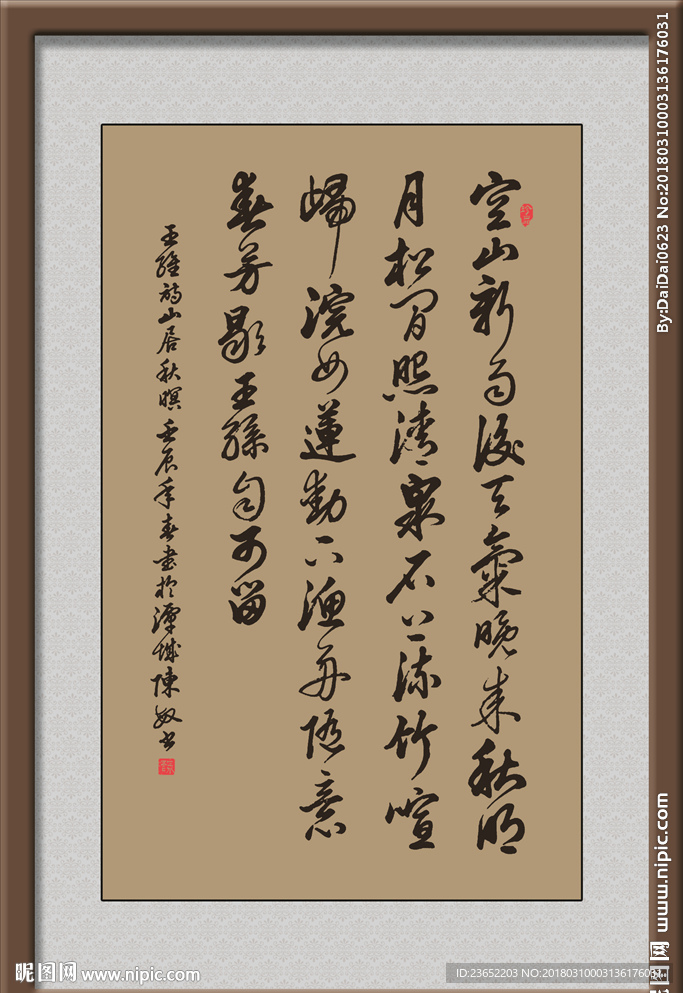 空山新雨後天氣晚来秋明
月松间照清泉石上流竹喧
歸浣女蓮動下漁舟隨意
春芳歇王孫自可留
王維詩山居秋暝 壬辰年春書於潭城陳敏书
By:DaiDai0623 No:20180310003136176031
昵图网 www.nipic.com
昵图网 www.nipic.com
ID:23652203 NO:20180310003136176031